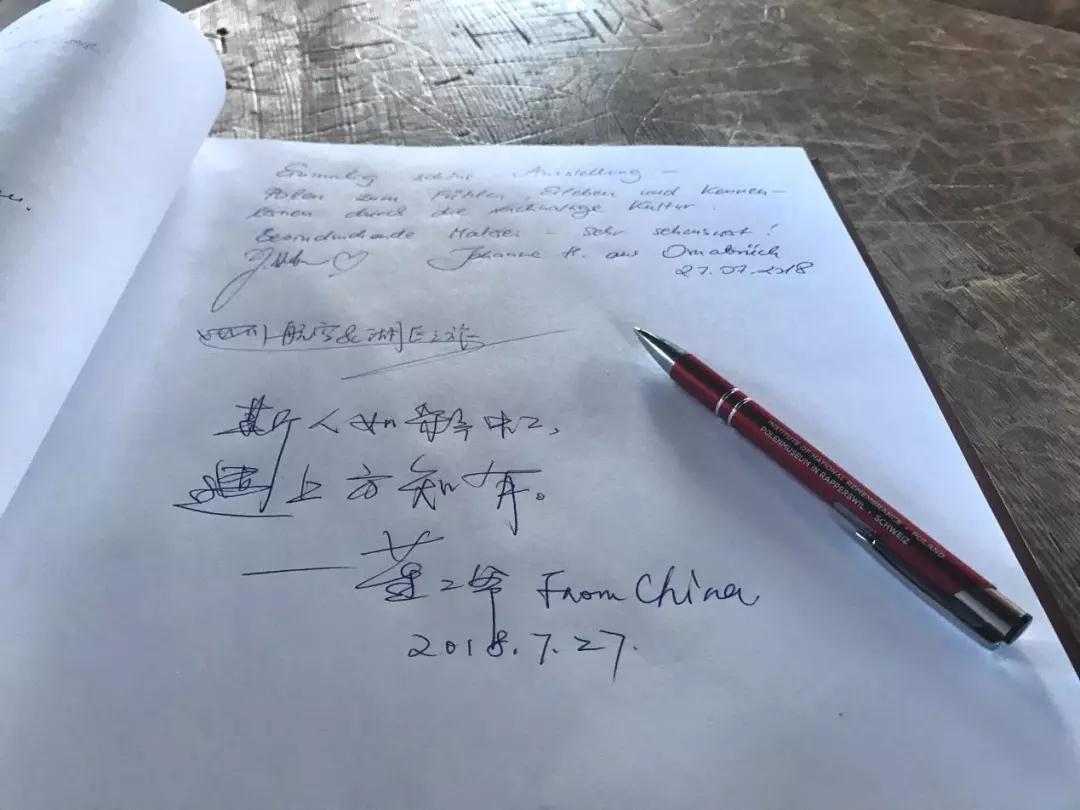 schöne Ausstellung –
Polen zum Fühlen, Erleben und Kennen-
lernen durch die reichhaltige Kultur.
Beeindruckende Malerei – sehr sehenswert!
Johanne H. aus Osnabrück
27.07.2018
航空&湖区之旅
斯人如彩虹,
遇上方知有。
——董二 From China
2018.7.27.
INSTITUTE OF NATIONAL REMEMBRANCE • POLAND
POLENMUSEUM IN RAPPERSWIL • SCHWEIZ